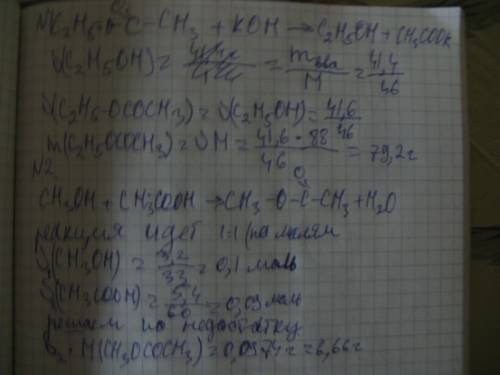 C₂H₅-O-C-CH₃ + KOH → C₂H₅OH + CH₃COOK
ν(C₂H₅OH) = = M = 41,4/46
ν(C₂H₅-OCOCH₃) = ν(C₂H₅OH) = 41,6/46
m(C₂H₅OCOCH₃) = νM = 41,6 · 88/46 = 79,2г
N2.
O
CH₃OH + CH₃COOH → CH₃-O-C-CH₃ + H₂O
реакция идет 1:1 (по молям
ν(CH₃OH) = 3,2/33 = 0,1 моль
ν(CH₃COOH) = 5,4/60 = 0,09 моль
решаем по недостатку
M(CH₃OCOCH₃) = 0,09·74г = 6,66г